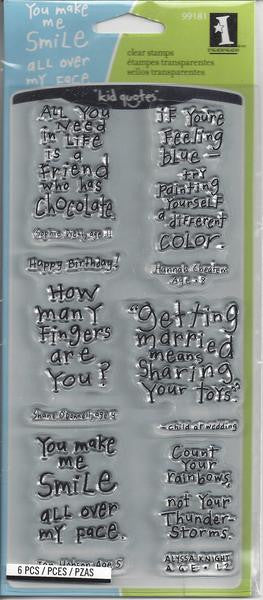 You make
me
Smile
all over
my face
99181
clear stamps
étampes transparentes
sellos transparentes
"kid quotes"
All You
Need
in Life
is a
Friend
who has
Chocolate
age
Happy Birthday!
How
many
Fingers
are
You?
Shane
age
You make
me
Smile
all over
my face.
Age 5
If You're
Feeling
blue—
try
Painting
Yourself
a different
color.
Hannah
Age - 8
"getting
married
means
sharing
your toys."
- child at wedding
Count
Your
rainbows,
not Your
Thunder-
Storms.
Alyssa Knight
Age - 12
6 PCS / PCES / PZAS